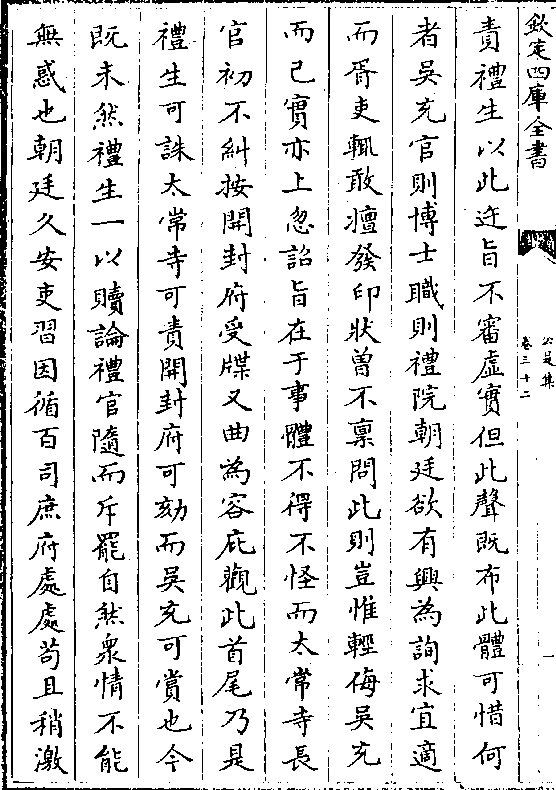 欽定四庫全書
公是集
卷三十二
責禮生以此迕旨不審虛實但此聲既布此體可惜何
者吳充官則博士職則禮院朝廷欲有興為詢求宜適
而胥吏輒敢擅發印狀曾不禀問此則豈惟輕侮吳充
而已實亦上忽詔旨在于事體不得不怪而太常寺長
官初不糾按開封府受牒又曲為容庇觀此首尾乃是
禮生可誅太常寺可責開封府可劾而吳充可賞也今
既未然禮生一以贖論禮官隨而斥罷自然衆情不能
無惑也朝廷久安吏習因循百司庶府處處苟且稍激